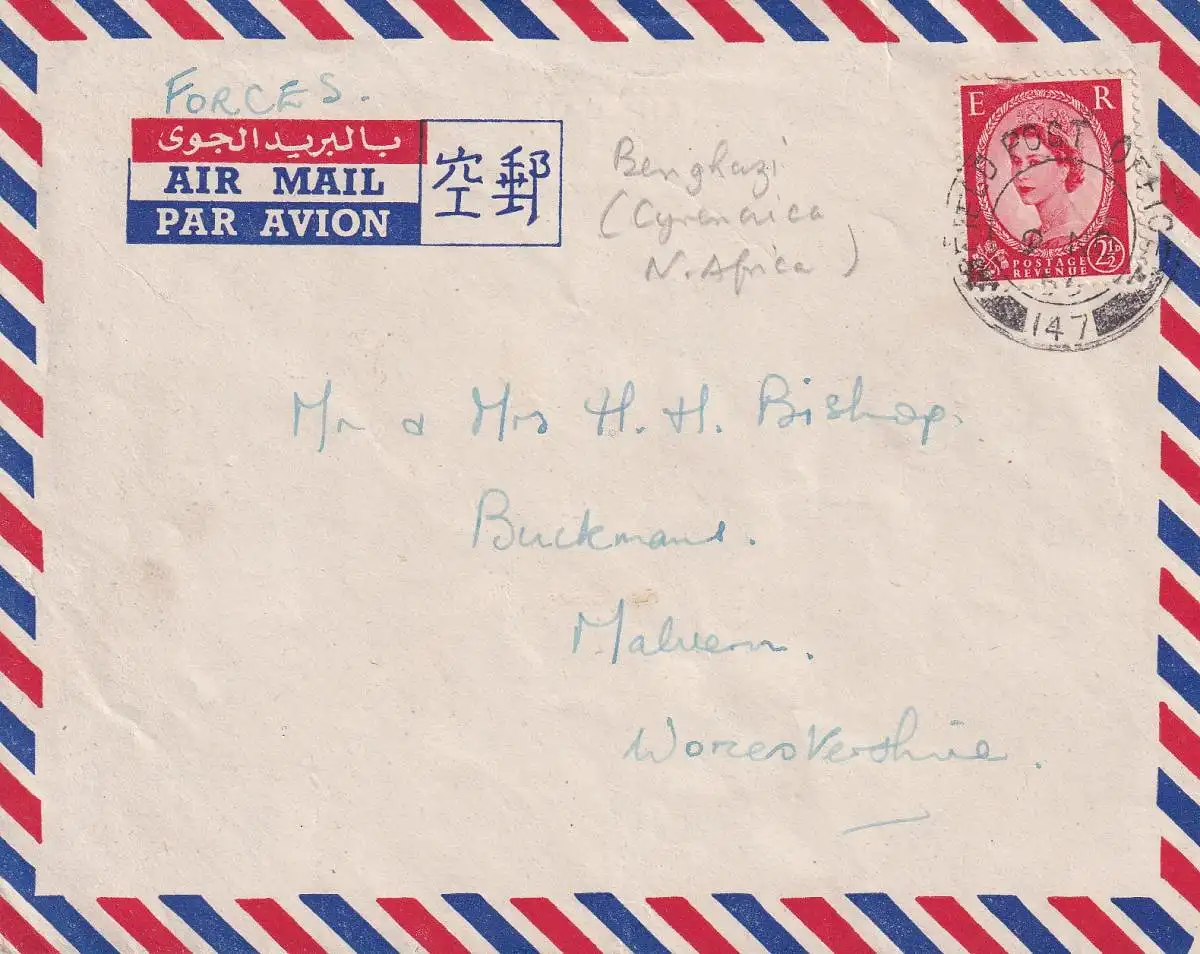 FORCES.
بالبريد الجوى
AIR MAIL
PAR AVION
空郵
Benghazi
(Cyrenaica
N. Africa)
E R
POSTAGE
REVENUE
2½D
FIELD POST OFFICE
147
Mr & Mrs H. H. Bishop.
Buckmans.
Malvern.
Worcestershire.